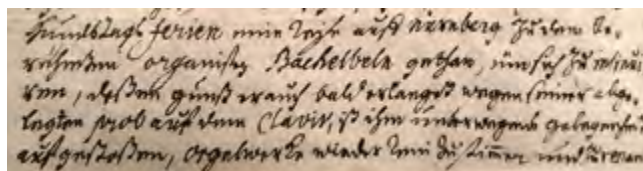 Hundstags ferien eine Reise auff Nürnberg zu dem be-
rühmten organisten Bachelbeln gethan, umb sich zu
ren, deßen gunst er auch bald erlanget wegen seiner abge-
legten prob auf dem Clavir, ist ihm unterwegens gelegenheit
aufgestoßen, orgelwerke wieder zu stimmen und zu